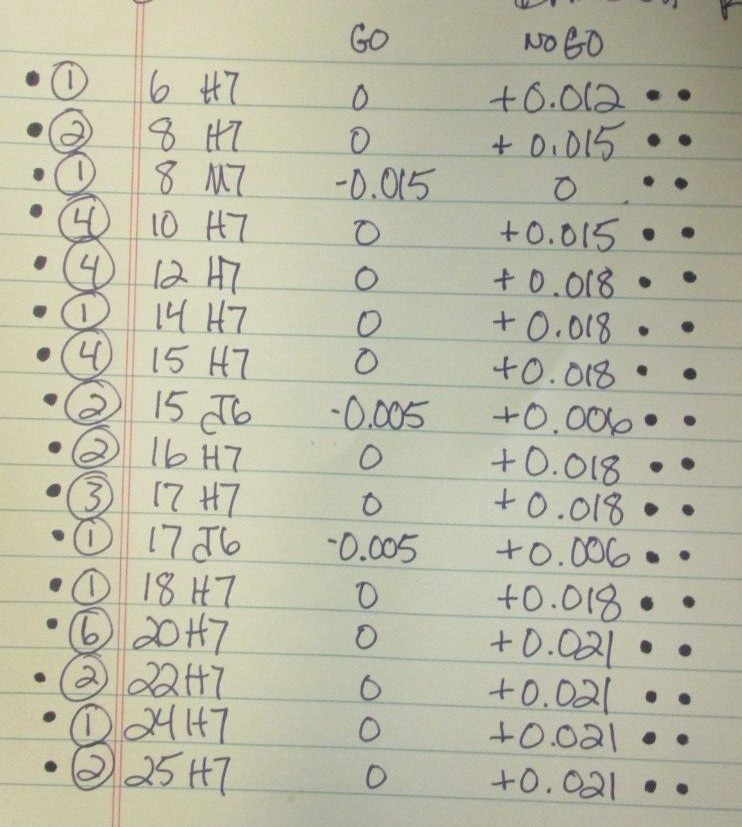 GO NO GO
• ① 6 H7 0 +0.012 • •
• ② 8 H7 0 + 0.015 • •
• ① 8 M7 -0.015 0 • •
• ④ 10 H7 0 +0.015 • •
• ④ 12 H7 0 + 0.018 • •
• ① 14 H7 0 + 0.018 • •
• ④ 15 H7 0 +0.018 • •
• ② 15 J6 -0.005 +0.006 • •
• ② 16 H7 0 +0.018 • •
• ③ 17 H7 0 + 0.018 • •
• ① 17 J6 -0.005 +0.006 • •
• ① 18 H7 0 +0.018 • •
• ⑥ 20 H7 0 +0.021 • •
• ② 22 H7 0 +0.021 • •
• ① 24 H7 0 +0.021 • •
• ② 25 H7 0 +0.021 • •